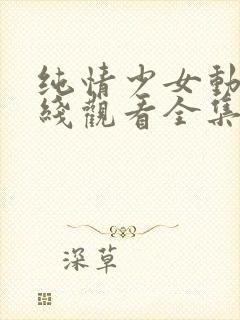 纯情少女動
綫觀看全集
深草